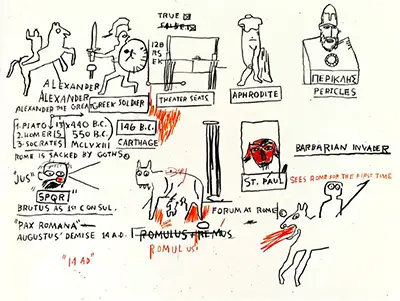 TRUE
FALSE
ALEXANDER
ALEXANDER
ALEXANDER THE GREAT
GREEK SOLDIER
THEATER SEATS
APHRODITE
ΠΕΡΙΚΛΗΣ
PERICLES
1. PLATO
2. HOMER
3. SOCRATES
440 B.C.
550 B.C.
MCLVXIII
146 B.C.
CARTHAGE
ROME IS SACKED BY GOTHS
"JUS"
SPQR
BRUTUS AS 1ST CONSUL.
"PAX ROMANA"
AUGUSTUS' DEMISE 14 A.D.
"14 AD"
ROMULUS + REMUS
ROMULUS
FORUM AT ROME
ST. PAUL
SEES ROME FOR THE FIRST TIME
BARBARIAN INVADER